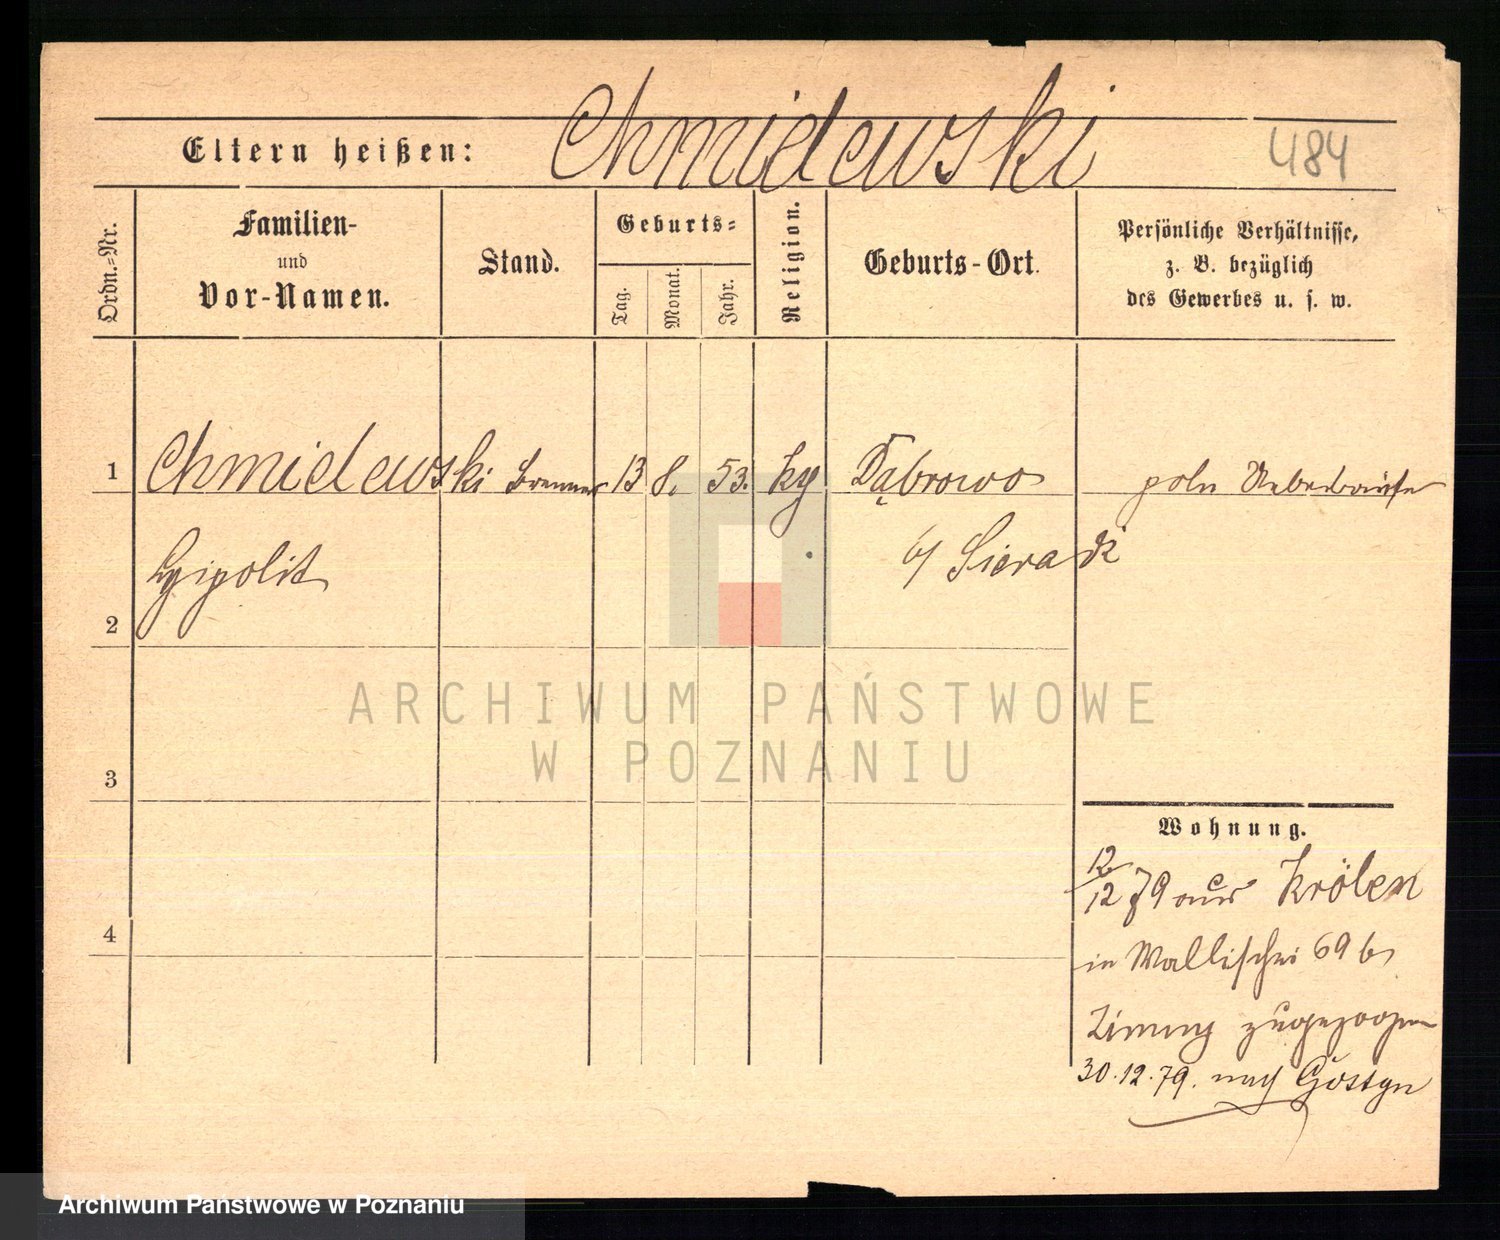 Eltern heißen: Chmielewski 484
Ordn.-Nr.
Familien-
und
Vor-Namen.
Stand.
Geburts-
Tag.
Monat.
Jahr.
Religion.
Geburts-Ort.
Persönliche Verhältnisse,
z. B. bezüglich
des Gewerbes u. s. w.
1 Chmielewski Brenner 13 8. 53. Dąbrowo poln
Sieradz
2
3
4
ARCHIWUM PAŃSTWOWE
W POZNANIU
Wohnung.
12/12 79 aus Kröben
in Wallischei 69 b
zugezogen
30.12.79. nach Gostyn
Archiwum Państwowe w Poznaniu